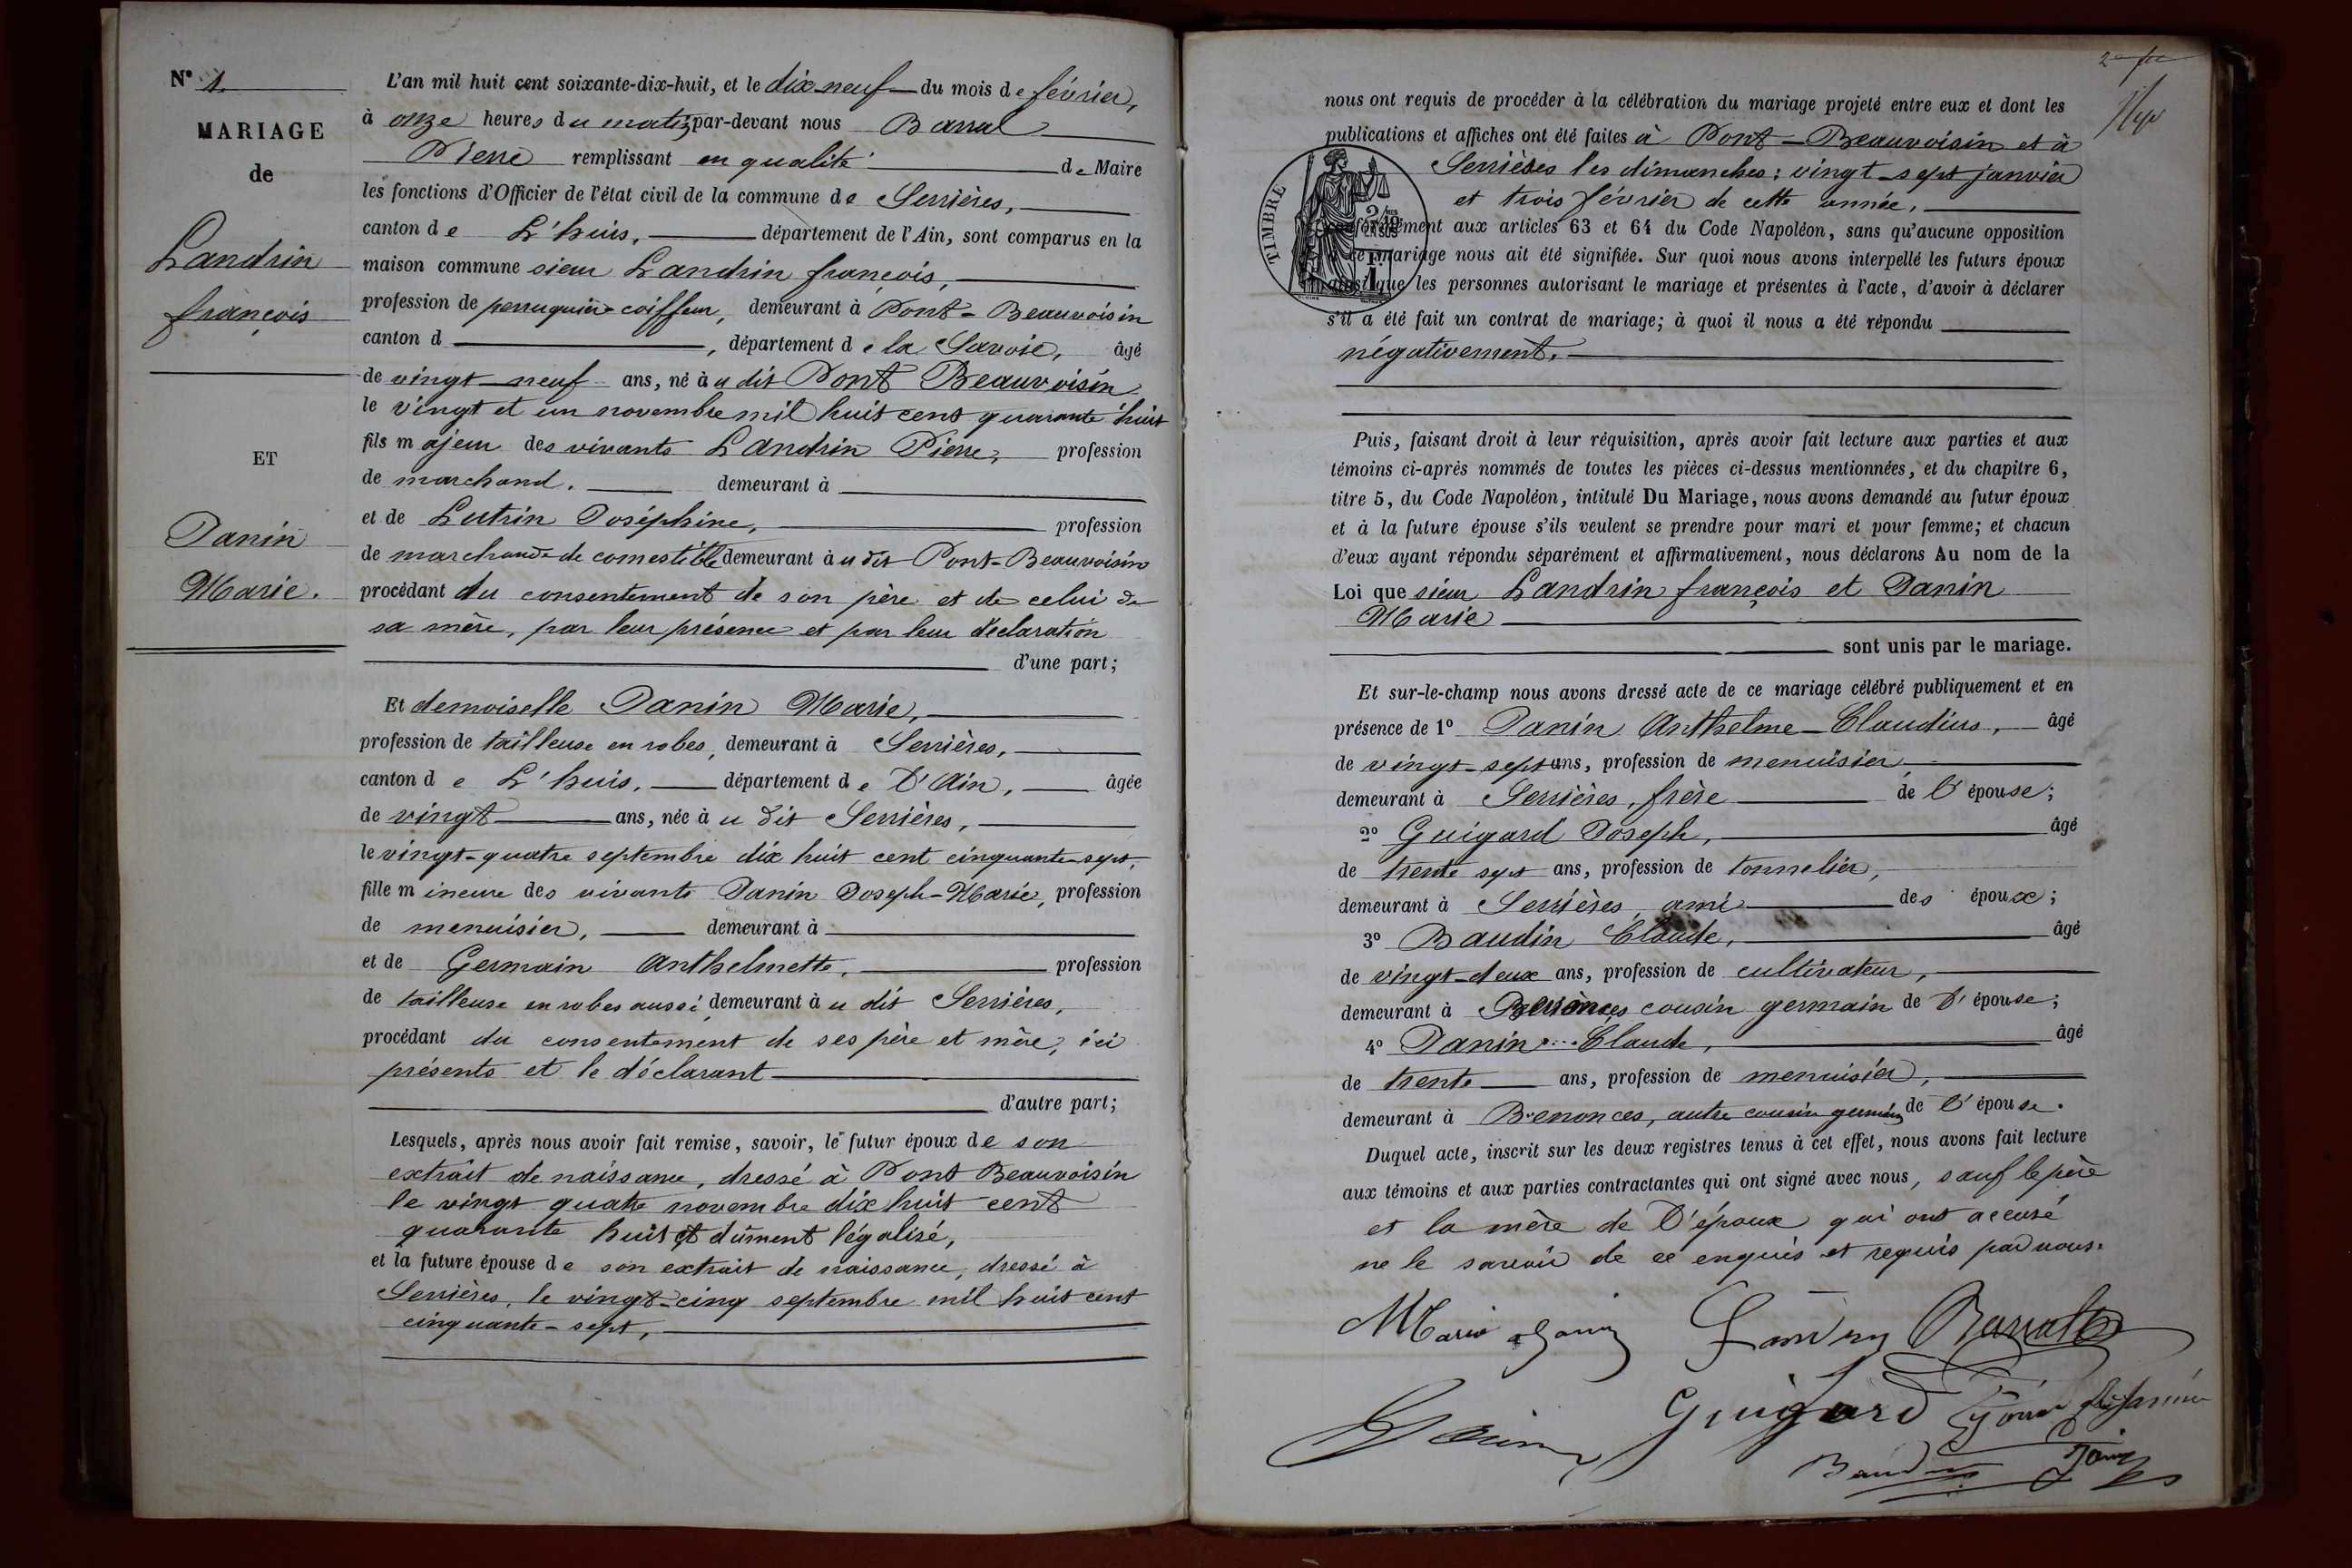 N° 1.
MARIAGE
de
Landrin
françois
ET
Janin
Marie.
L'an mil huit cent soixante-dix-huit, et le dix-neuf du mois de février,
à onze heures du matin par-devant nous Barral
Pierre remplissant en qualité de Maire
les fonctions d'Officier de l'état civil de la commune de Serrières,
canton de L'huis, département de l'Ain, sont comparus en la
maison commune sieur Landrin françois,
profession de perruquier-coiffeur, demeurant à Pont-Beauvoisin
canton d , département de la Savoie, âgé
de vingt-neuf ans, né à u dit Pont Beauvoisin
le vingt et un novembre mil huit cent quarante huit
fils majeur des vivants Landrin Pierre, profession
de marchand. demeurant à
et de Lutrin Joséphine, profession
de marchande de comestible demeurant à u dit Pont-Beauvoisin
procédant du consentement de son père et de celui de
sa mère, par leur présence et par leur déclaration
d'une part;
Et demoiselle Janin Marie,
profession de tailleuse en robes, demeurant à Serrières,
canton de L'huis, département de l'Ain, âgée
de vingt ans, née à u dit Serrières,
le vingt-quatre septembre dix huit cent cinquante-sept,
fille mineure des vivants Janin Joseph-Marie, profession
de menuisier, demeurant à
et de Germain Anthelmette, profession
de tailleuse en robes aussi, demeurant à u dit Serrières,
procédant du consentement de ses père et mère, ici
présents et le déclarant
d'autre part;
Lesquels, après nous avoir fait remise, savoir, le futur époux de son
extrait de naissance, dressé à Pont Beauvoisin
le vingt quatre novembre dix huit cent
quarante huit et dûment légalisé,
et la future épouse de son extrait de naissance, dressé à
Serrières, le vingt-cinq septembre mil huit cent
cinquante-sept,
nous ont requis de procéder à la célébration du mariage projeté entre eux et dont les
publications et affiches ont été faites à Pont-Beauvoisin et à
Serrières les dimanches: vingt-sept janvier
et trois février de cette année,
TIMBRE
conformément aux articles 63 et 64 du Code Napoléon, sans qu'aucune opposition
à ce mariage nous ait été signifiée. Sur quoi nous avons interpellé les futurs époux
ainsi que les personnes autorisant le mariage et présentes à l'acte, d'avoir à déclarer
s'il a été fait un contrat de mariage; à quoi il nous a été répondu
négativement.
Puis, faisant droit à leur réquisition, après avoir fait lecture aux parties et aux
témoins ci-après nommés de toutes les pièces ci-dessus mentionnées, et du chapitre 6,
titre 5, du Code Napoléon, intitulé Du Mariage, nous avons demandé au futur époux
et à la future épouse s'ils veulent se prendre pour mari et pour femme; et chacun
d'eux ayant répondu séparément et affirmativement, nous déclarons Au nom de la
Loi que sieur Landrin françois et Janin
Marie
sont unis par le mariage.
Et sur-le-champ nous avons dressé acte de ce mariage célébré publiquement et en
présence de 1° Janin Anthelme-Claudius, âgé
de vingt-sept ans, profession de menuisier,
demeurant à Serrières, frère de l'épouse;
2° Guigard Joseph, âgé
de trente sept ans, profession de tonnelier,
demeurant à Serrières, ami des époux;
3° Baudin Claude, âgé
de vingt-deux ans, profession de cultivateur,
demeurant à cousin germain de l'épouse;
4° Janin Claude, âgé
de trente ans, profession de menuisier,
demeurant à Benonces, autre cousin germain de l'épouse.
Duquel acte, inscrit sur les deux registres tenus à cet effet, nous avons fait lecture
aux témoins et aux parties contractantes qui ont signé avec nous, sauf le père
et la mère de l'époux qui ont accusé
ne le savoir de ce enquis et requis par nous.
Marie Janin Landrin Barral
Janin Guigard
Baudin Janin